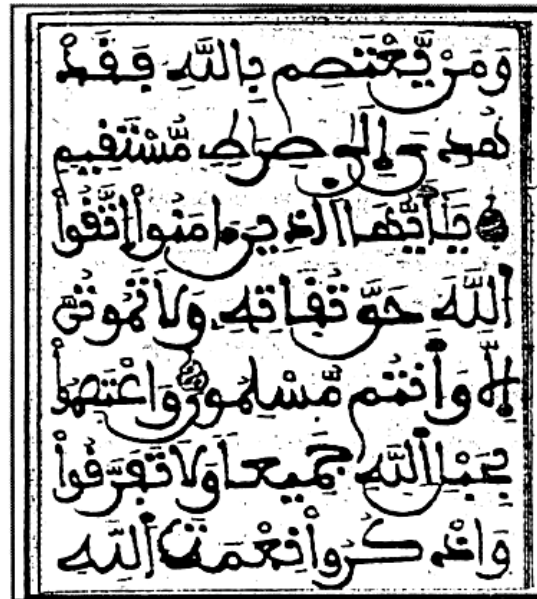 وَمَنْ يَّعْتَصِم بِاللَّهِ فَقَدْ
هُدِيَ إِلَىٰ صِرَاطٍ مُّسْتَقِيمٍ
يَٰأَيُّهَا الَذِينَ ءَامَنُواْ اتَّقُواْ
اللَّهَ حَقَّ تُقَاتِهِۦ وَلَا تَمُوتُنَّ
إِلَّا وَأَنتُم مُّسْلِمُونَ وَاعْتَصِمُواْ
بِحَبْلِ اللَّهِ جَمِيعاً وَلَا تَفَرَّقُواْ
وَاذْكُرُواْ نِعْمَتَ اللَّهِ